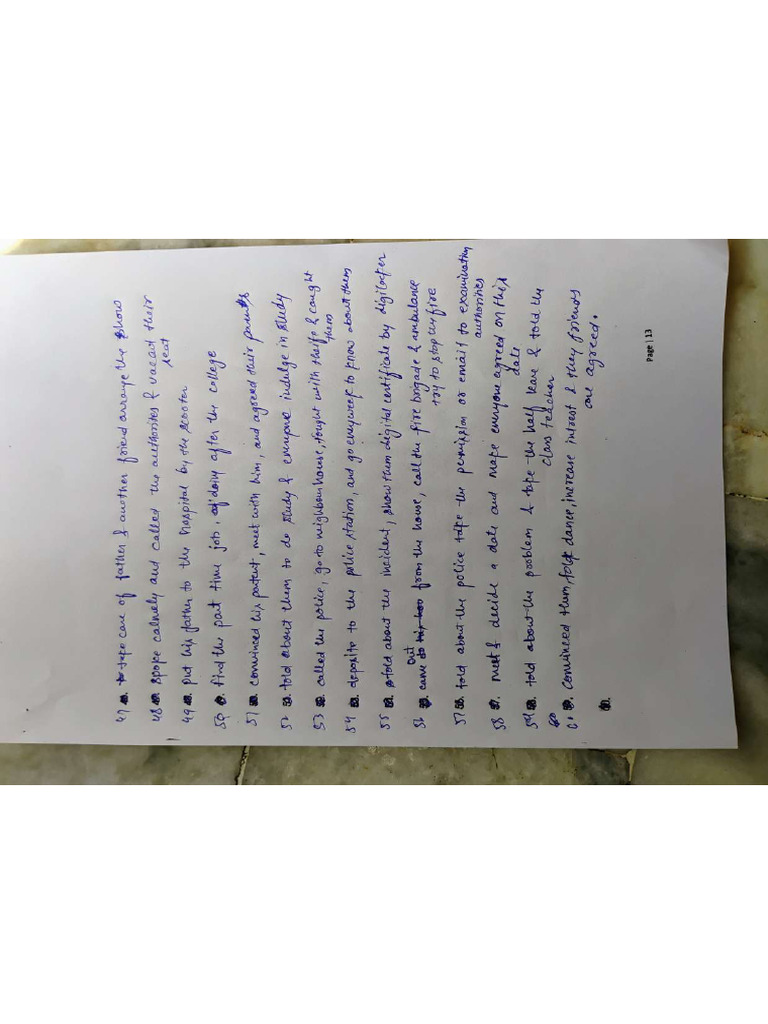 47 take care of father & another friend arrange the show
48 spoke calmely and called the authorities & vacant their
seat
49 put his father to the hospital by the scooter
50 find the part time job, doing after the college
51 convinced his patent, meet with him, and agreed their parents
52 told about them to do study & everyone indulge in study
53 called the police, go to neighbour house, fought with theife & caught
them
54 deposite to the police station, and go every week to know about them
55 told about the incident, show them digital certificate by digilocker
56 came out from the house, call the fire brigade & ambulance
try to stop the fire
57 told about the police take the permission or email to examination
authorities
58 meet & decide a date and make everyone agreed on this
date
59 told about the problem & take the half leave & told the
class teacher
60
61 convinced them, folk dance, increase intrest & they friends
are agreed.
Page | 13